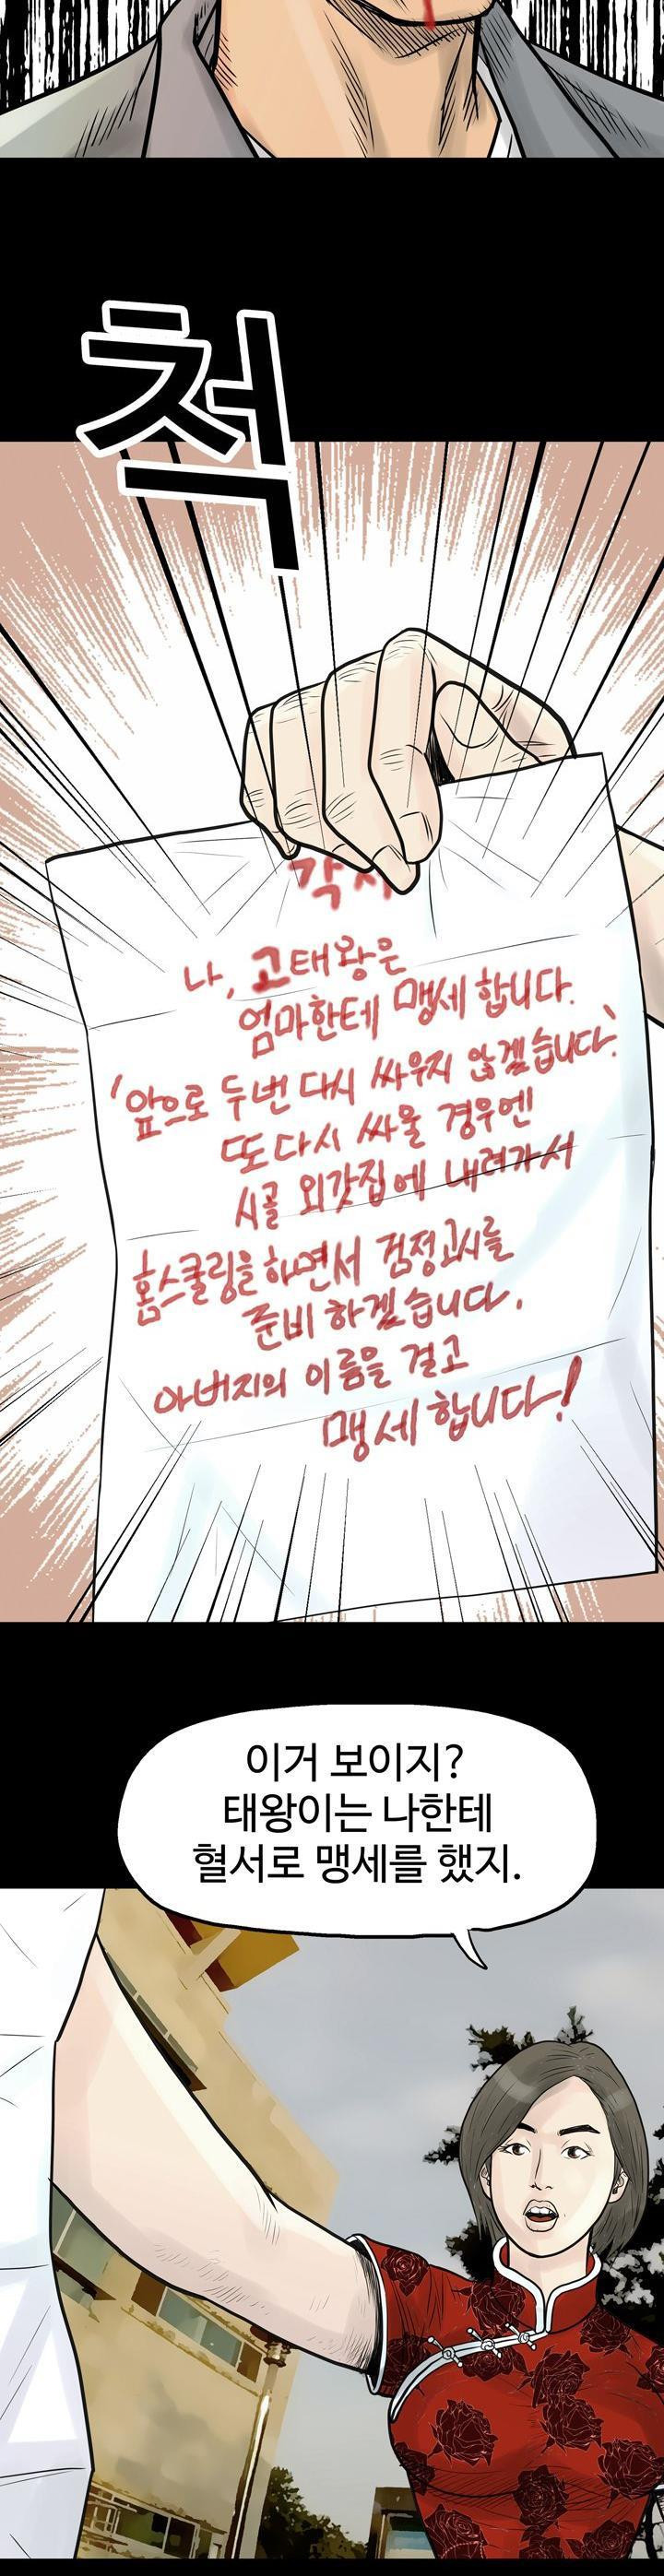 척
각서
나, 고태왕은
엄마한테 맹세합니다.
'앞으로 두번 다시 싸우지 않겠습니다.'
또다시 싸울 경우엔
시골 외갓집에 내려가서
홈스쿨링을 하면서 검정고시를
준비 하겠습니다.
아버지의 이름을 걸고
맹세합니다!
이거 보이지?
태왕이는 나한테
혈서로 맹세를 했지.